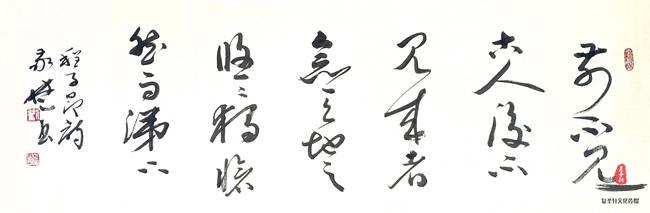 前不見
古人後不
見來者
念天地之
悠〻獨愴
然而涕下
子昂
書
文化传媒